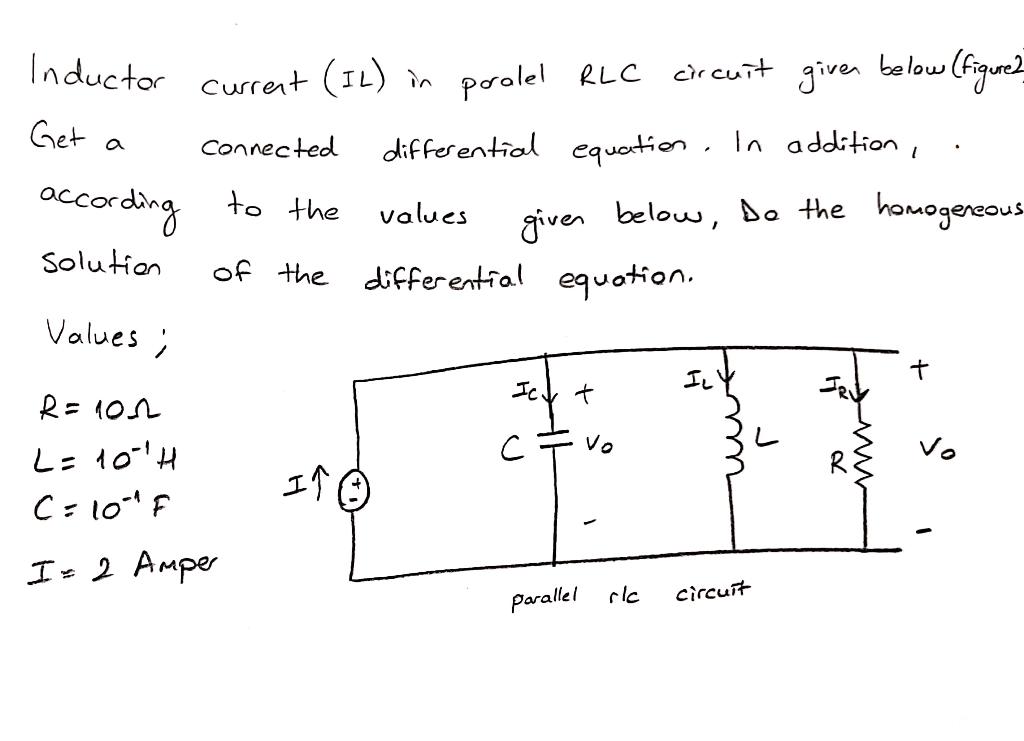 Inductor current (IL) in poralel RLC circuit given below (figure2)
Get a connected differential equation. In addition,
according to the values given below, Do the homogeneous
solution of the differential equation.
Values ;
R = 10Ω
L = 10⁻¹ H
C = 10⁻¹ F
I = 2 Amper
I↑
+
-
Ic
+
C
Vo
-
IL
L
IR
R
+
Vo
-
parallel rlc circuit